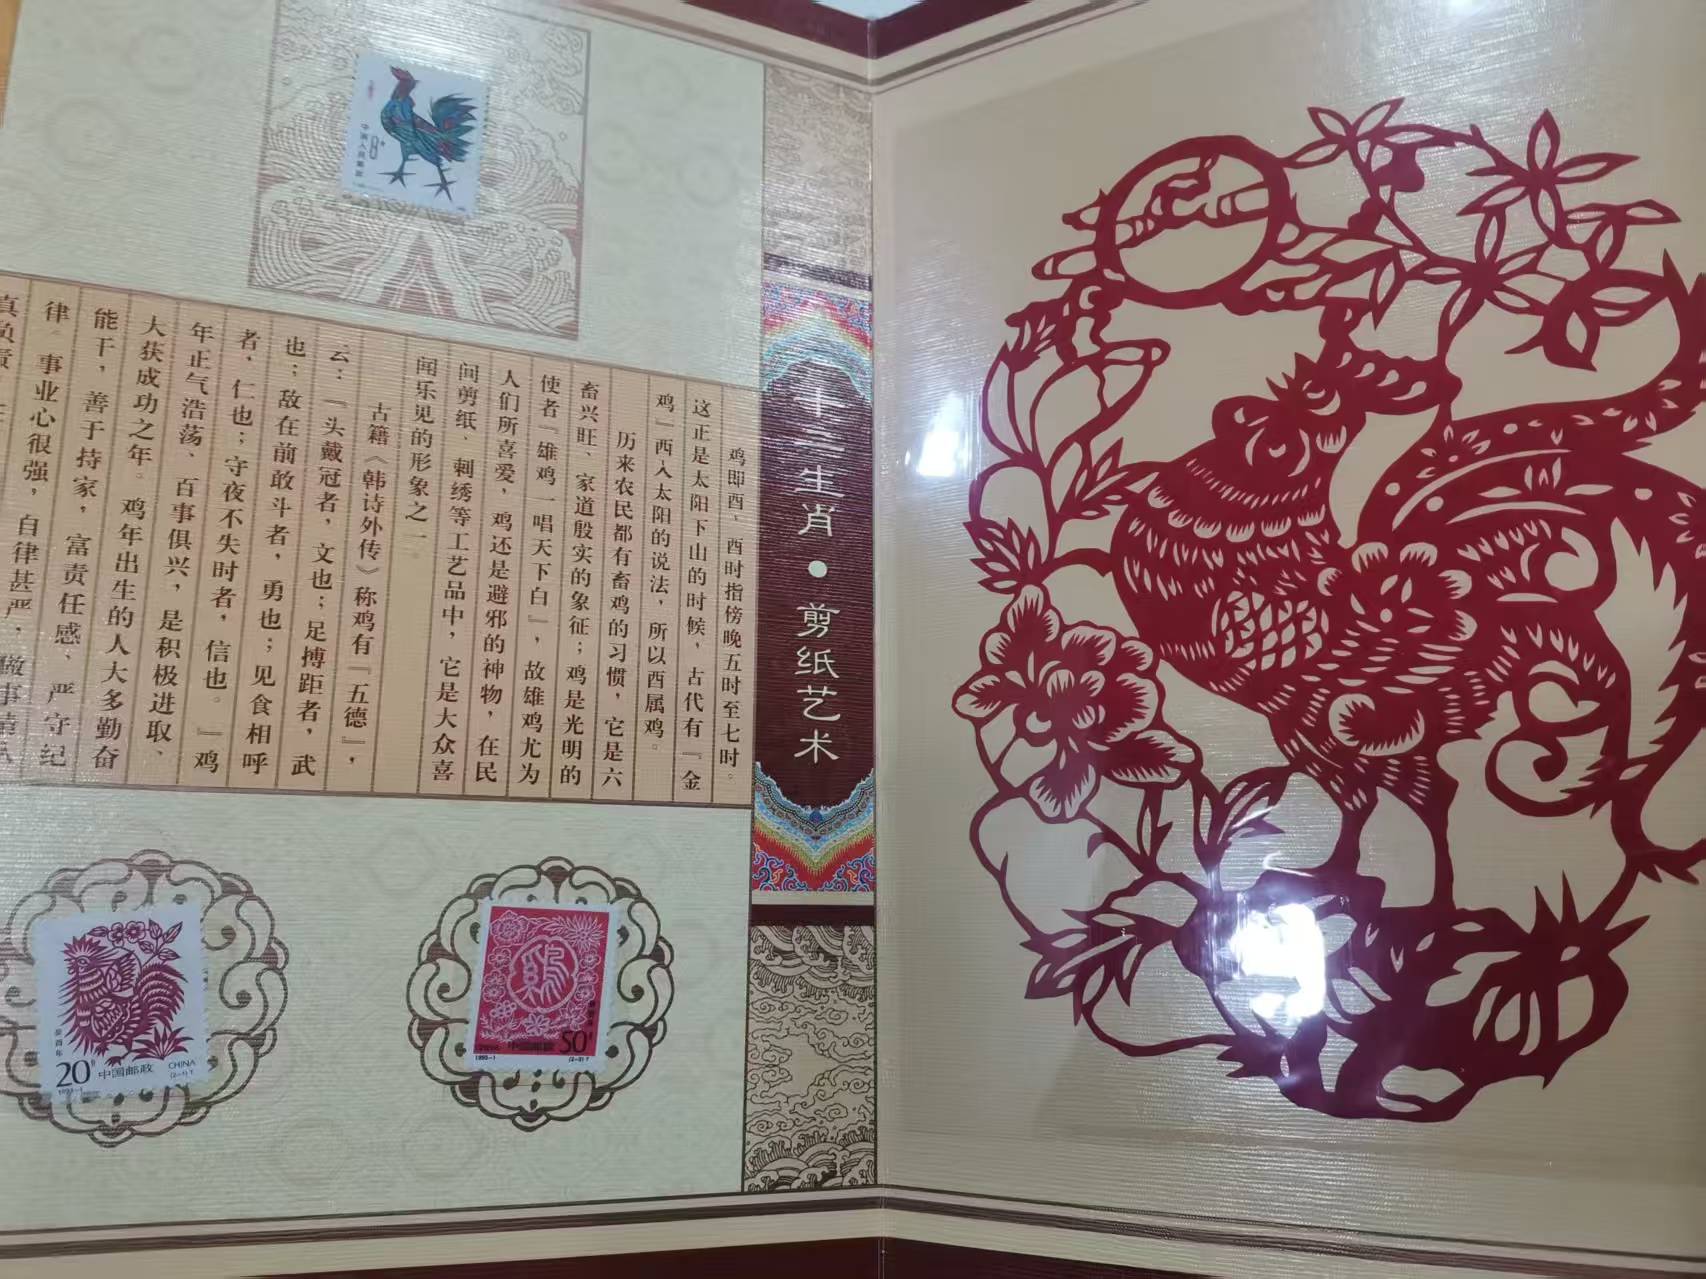 十二生肖·剪纸艺术
鸡即酉、酉时指傍晚五时至七时。
这正是太阳下山的时候，古代有『金
鸡』西入太阳的说法，所以酉属鸡。
历来农民都有畜鸡的习惯，它是六
畜兴旺、家道殷实的象征；鸡是光明的
使者『雄鸡一唱天下白』，故雄鸡尤为
人们所喜爱，鸡还是避邪的神物，在民
间剪纸、刺绣等工艺品中，它是大众喜
闻乐见的形象之一
古籍《韩诗外传》称鸡有『五德』，
云：『头戴冠者，文也；足搏距者，武
也；敌在前敢斗者，勇也；见食相呼
者，仁也；守夜不失时者，信也。』鸡
年正气浩荡、百事俱兴，是积极进取、
大获成功之年。鸡年出生的人大多勤奋
能干，善于持家，富责任感、严守纪
律。事业心很强，自律甚严，
中国人民邮政
8分
癸酉年
20分
中国邮政
CHINA
(2-1)T
1993-1
鸡
中国邮政
50分
1993-1
(2-2)T